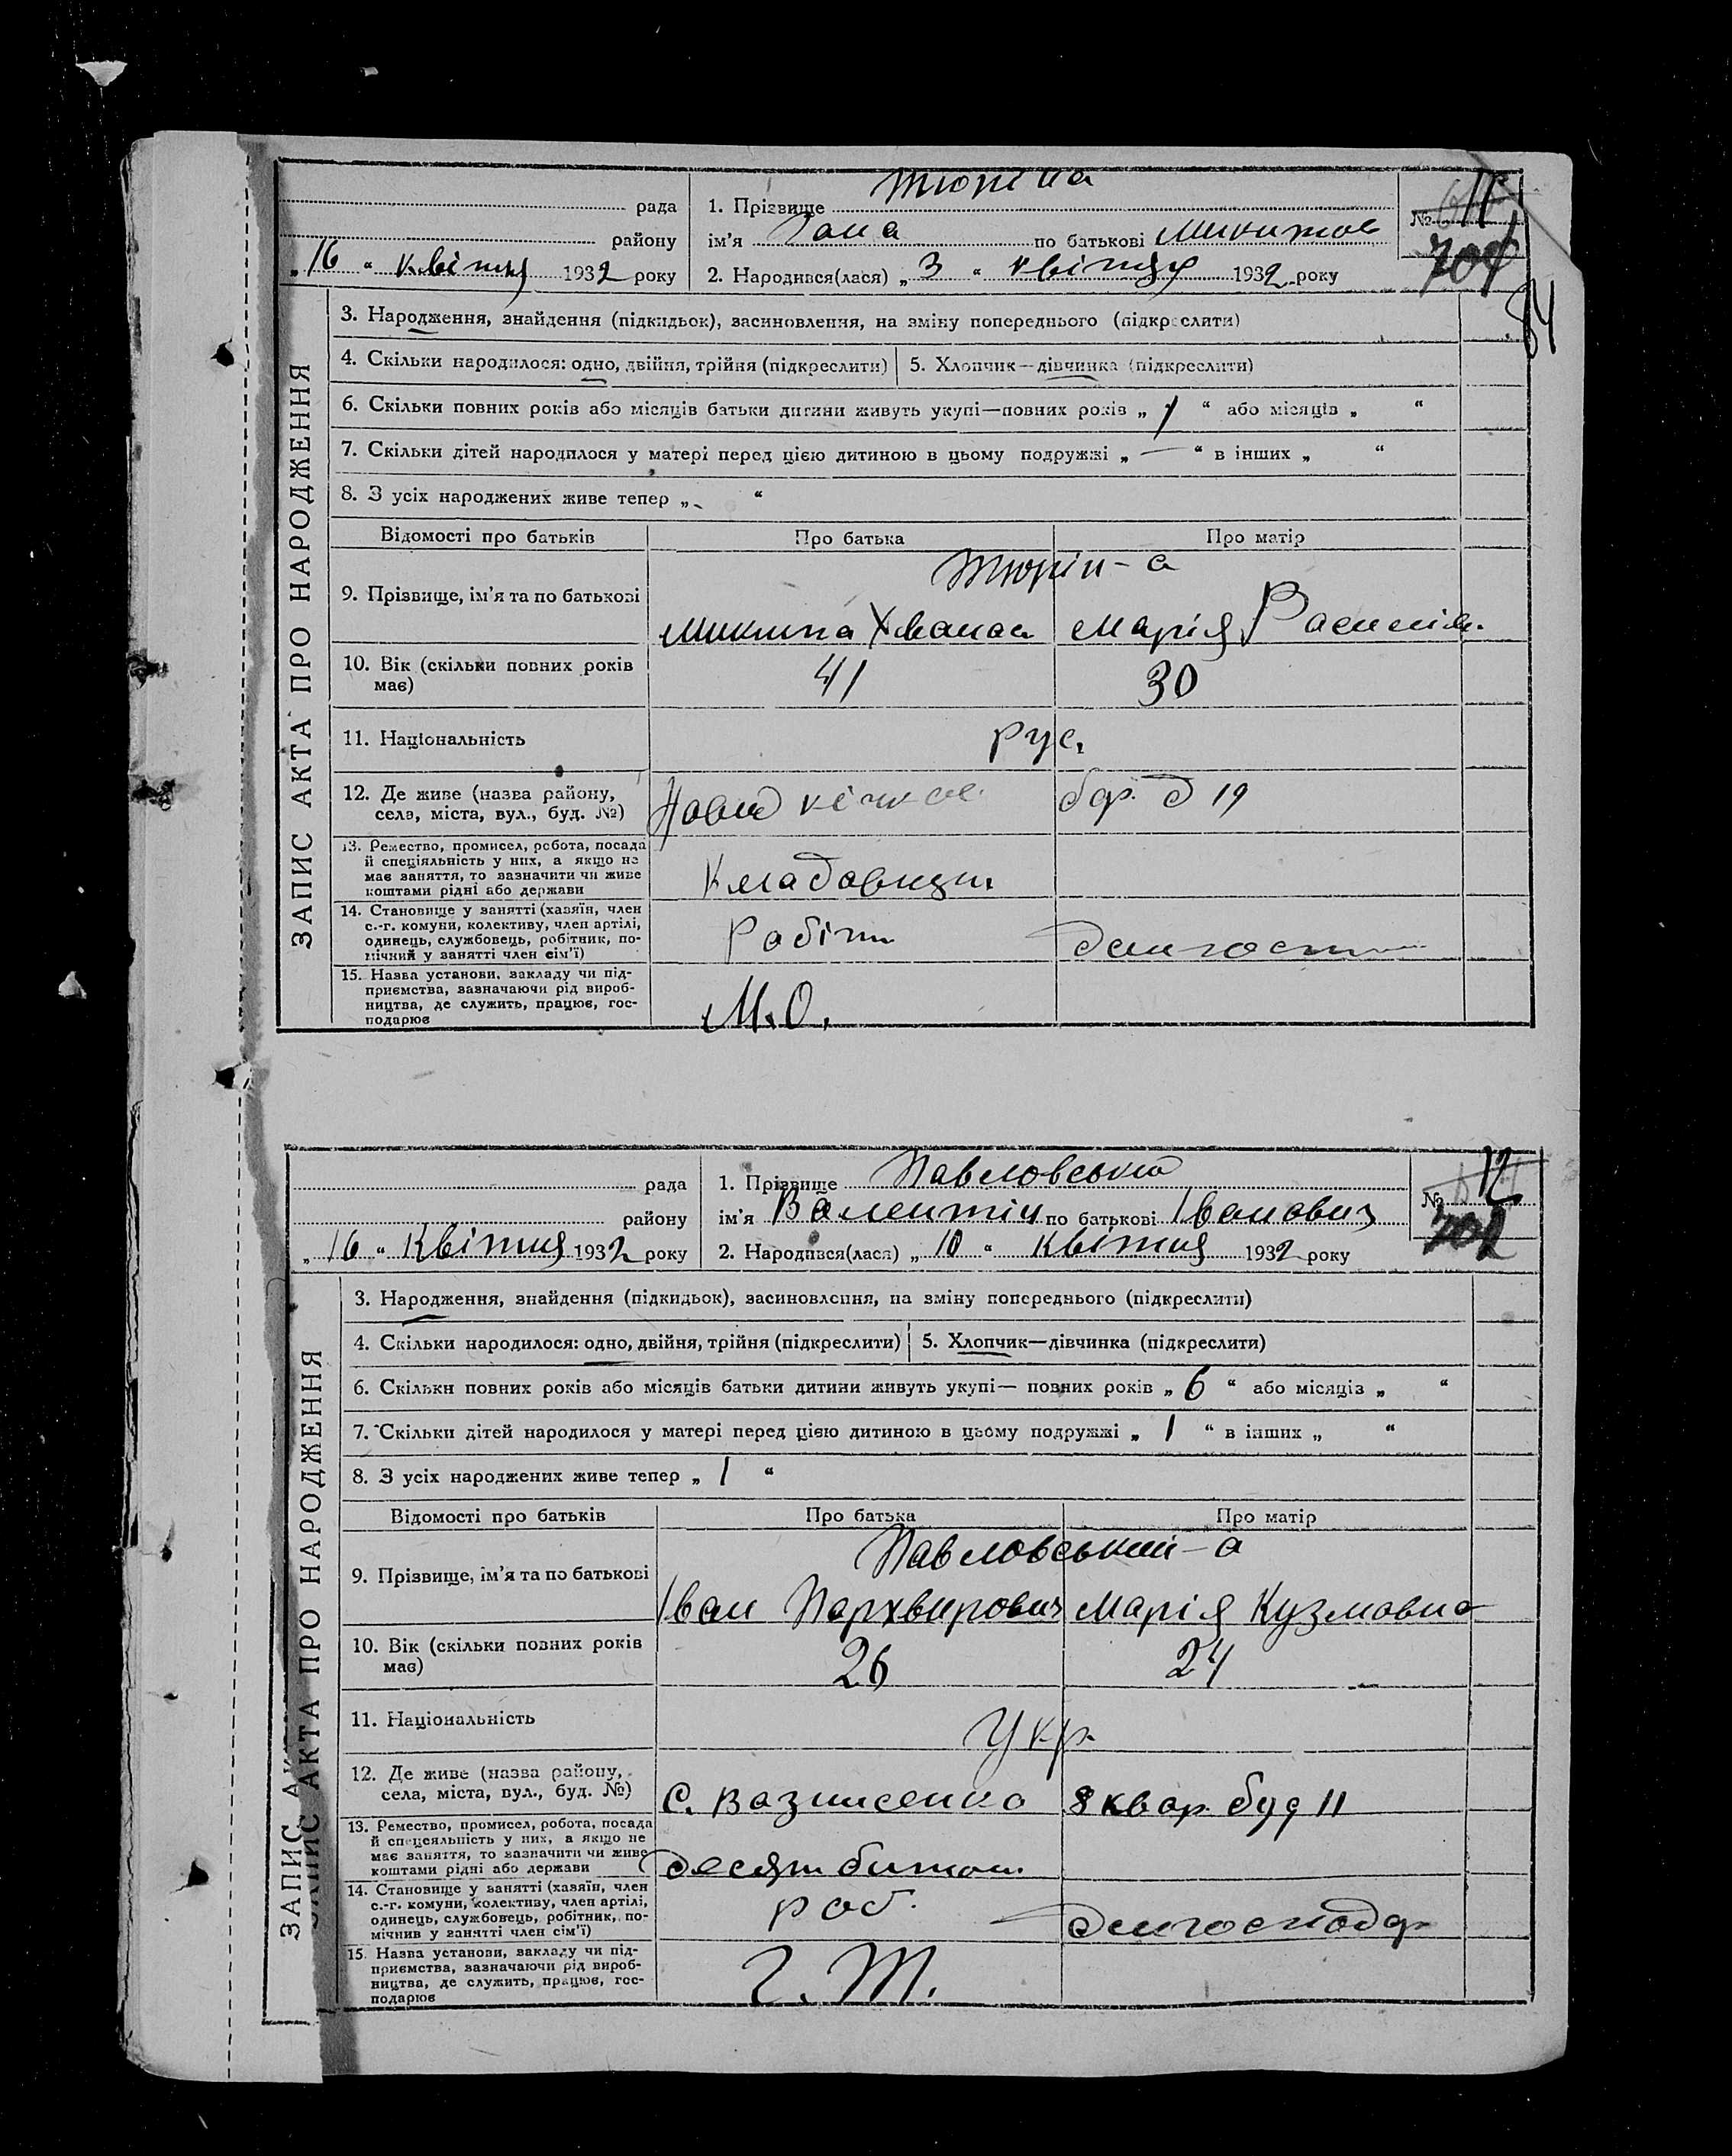 Тюріна
рада
1. Прізвище
№ 11
району
ім'я
по батькові Микитов
„16 “ квітня 1932 року
2. Народився(лася) „ 3 “ квітня 1932 року
84
ЗАПИС АКТА ПРО НАРОДЖЕННЯ
3. Народження, знайдення (підкидьок), засиновлення, на зміну попереднього (підкреслити)
4. Скільки народилося: одно, двійня, трійня (підкреслити)
5. Хлопчик—дівчинка (підкреслити)
6. Скільки повних років або місяців батьки дитини живуть укупі—повних років „ 1 “ або місяців „ “
7. Скільки дітей народилося у матері перед цією дитиною в цьому подружжі „ — “ в інших „ “
8. З усіх народжених живе тепер „ “
Відомості про батьків
Про батька
Про матір
Тюрін-а
9. Прізвище, ім'я та по батькові
Микита Хванас
Марія Василів.
10. Вік (скільки повних років має)
41
30
11. Національність
рус.
12. Де живе (назва району, села, міста, вул., буд. №)
бар. д 19
13. Ремество, промисел, робота, посада
й спеціяльність у них, а якщо не
має заняття, то зазначити чи живе
коштами рідні або держави
Кладовщик
14. Становище у занятті (хазяїн, член
с.-г. комуни, колективу, член артілі,
одинець, службовець, робітник, по-
мічний у занятті член сім'ї)
Робітн
домгосп
15. Назва установи, закладу чи під-
приємства, зазначаючи рід вироб-
ництва, де служить, працює, гос-
подарює
М.О.
Павловський
рада
1. Прізвище
№ 12
району
ім'я Валентін по батькові Іванович
702
„ 16 “ Квітня 1932 року
2. Народився(лася) „ 10 “ квітня 1932 року
ЗАПИС АКТА ПРО НАРОДЖЕННЯ
3. Народження, знайдення (підкидьок), засиновлення, на зміну попереднього (підкреслити)
4. Скільки народилося: одно, двійня, трійня (підкреслити)
5. Хлопчик—дівчинка (підкреслити)
6. Скільки повних років або місяців батьки дитини живуть укупі— повних років „ 6 “ або місяців „ “
7. Скільки дітей народилося у матері перед цією дитиною в цьому подружжі „ 1 “ в інших „ “
8. З усіх народжених живе тепер „ 1 “
Відомості про батьків
Про батька
Про матір
Павловський-а
9. Прізвище, ім'я та по батькові
Іван Пархвирович
Марія Кузмовна
10. Вік (скільки повних років має)
26
24
11. Національність
Укр.
12. Де живе (назва району, села, міста, вул., буд. №)
С. Вознисенка
8 квар. буд 11
13. Ремество, промисел, робота, посада
й спецеяльність у них, а якщо не
має заняття, то зазначити чи живе
коштами рідні або держави
десят битон.
14. Становище у занятті (хазяїн, член
с.-г. комуни, колективу, член артілі,
одинець, службовець, робітник, по-
мічнив у занятті член сім'ї)
роб.
домгосподар
15. Назва установи, закладу чи під-
приємства, зазначаючи рід вироб-
ництва, де служить, працює, гос-
подарює
Г.Т.
ЗАПИС АК